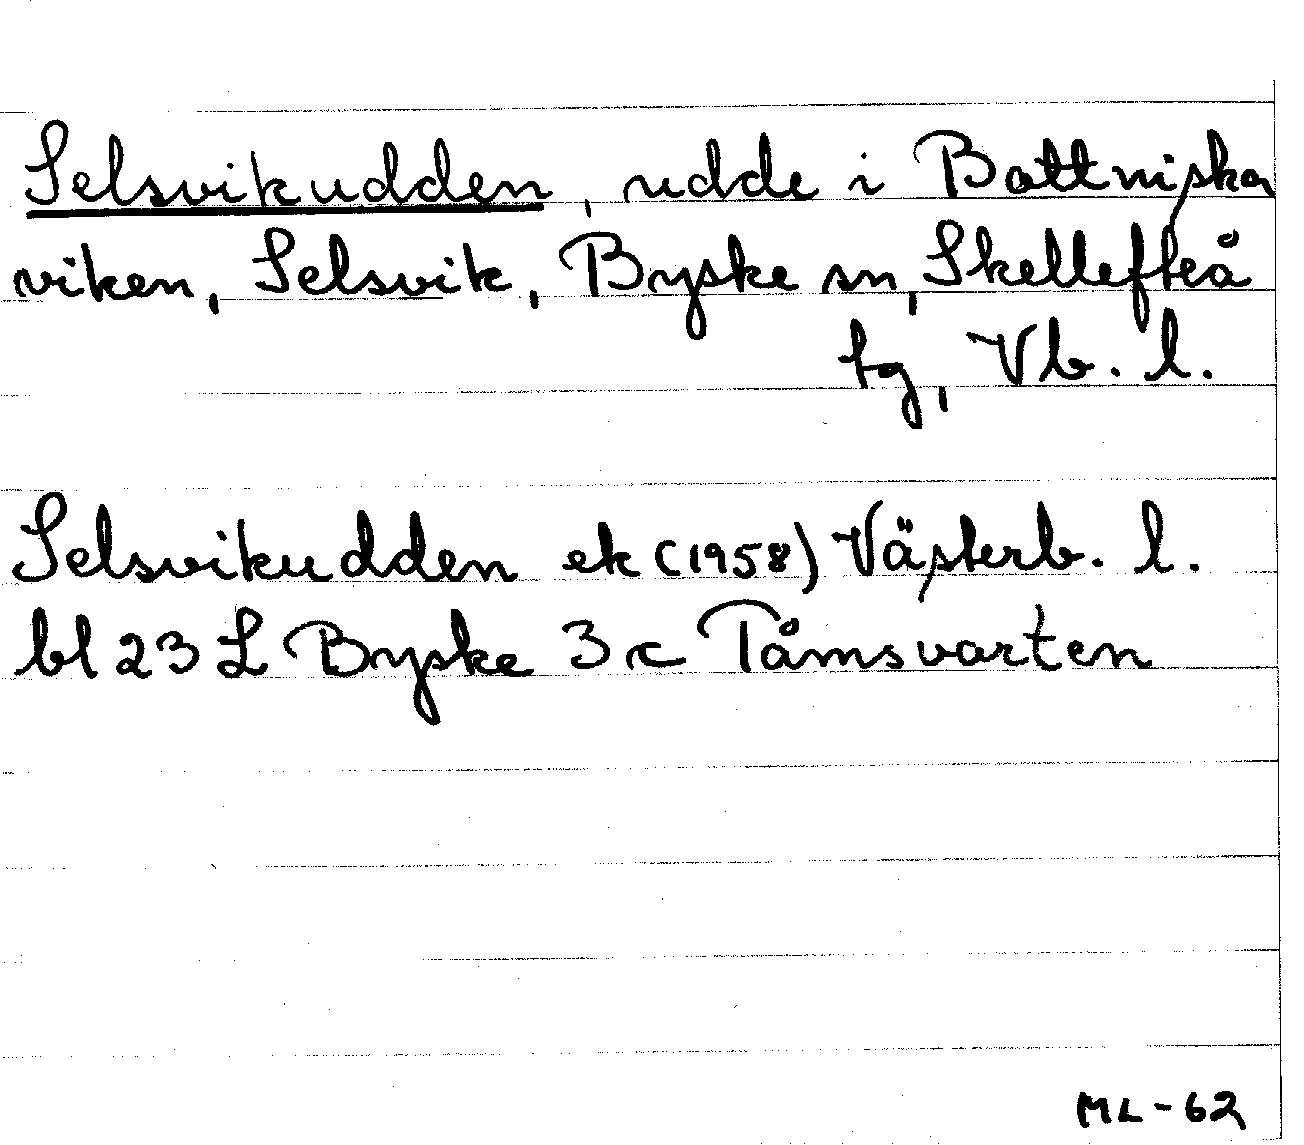 Selsvikudden, udde i Bottniska
viken, Selsvik, Byske sn, Skellefteå
tg, Vb. l.
Selsvikudden ek (1958) Västerb. l.
bl 23 L Byske 3 c Tåmsvarten
ML-62